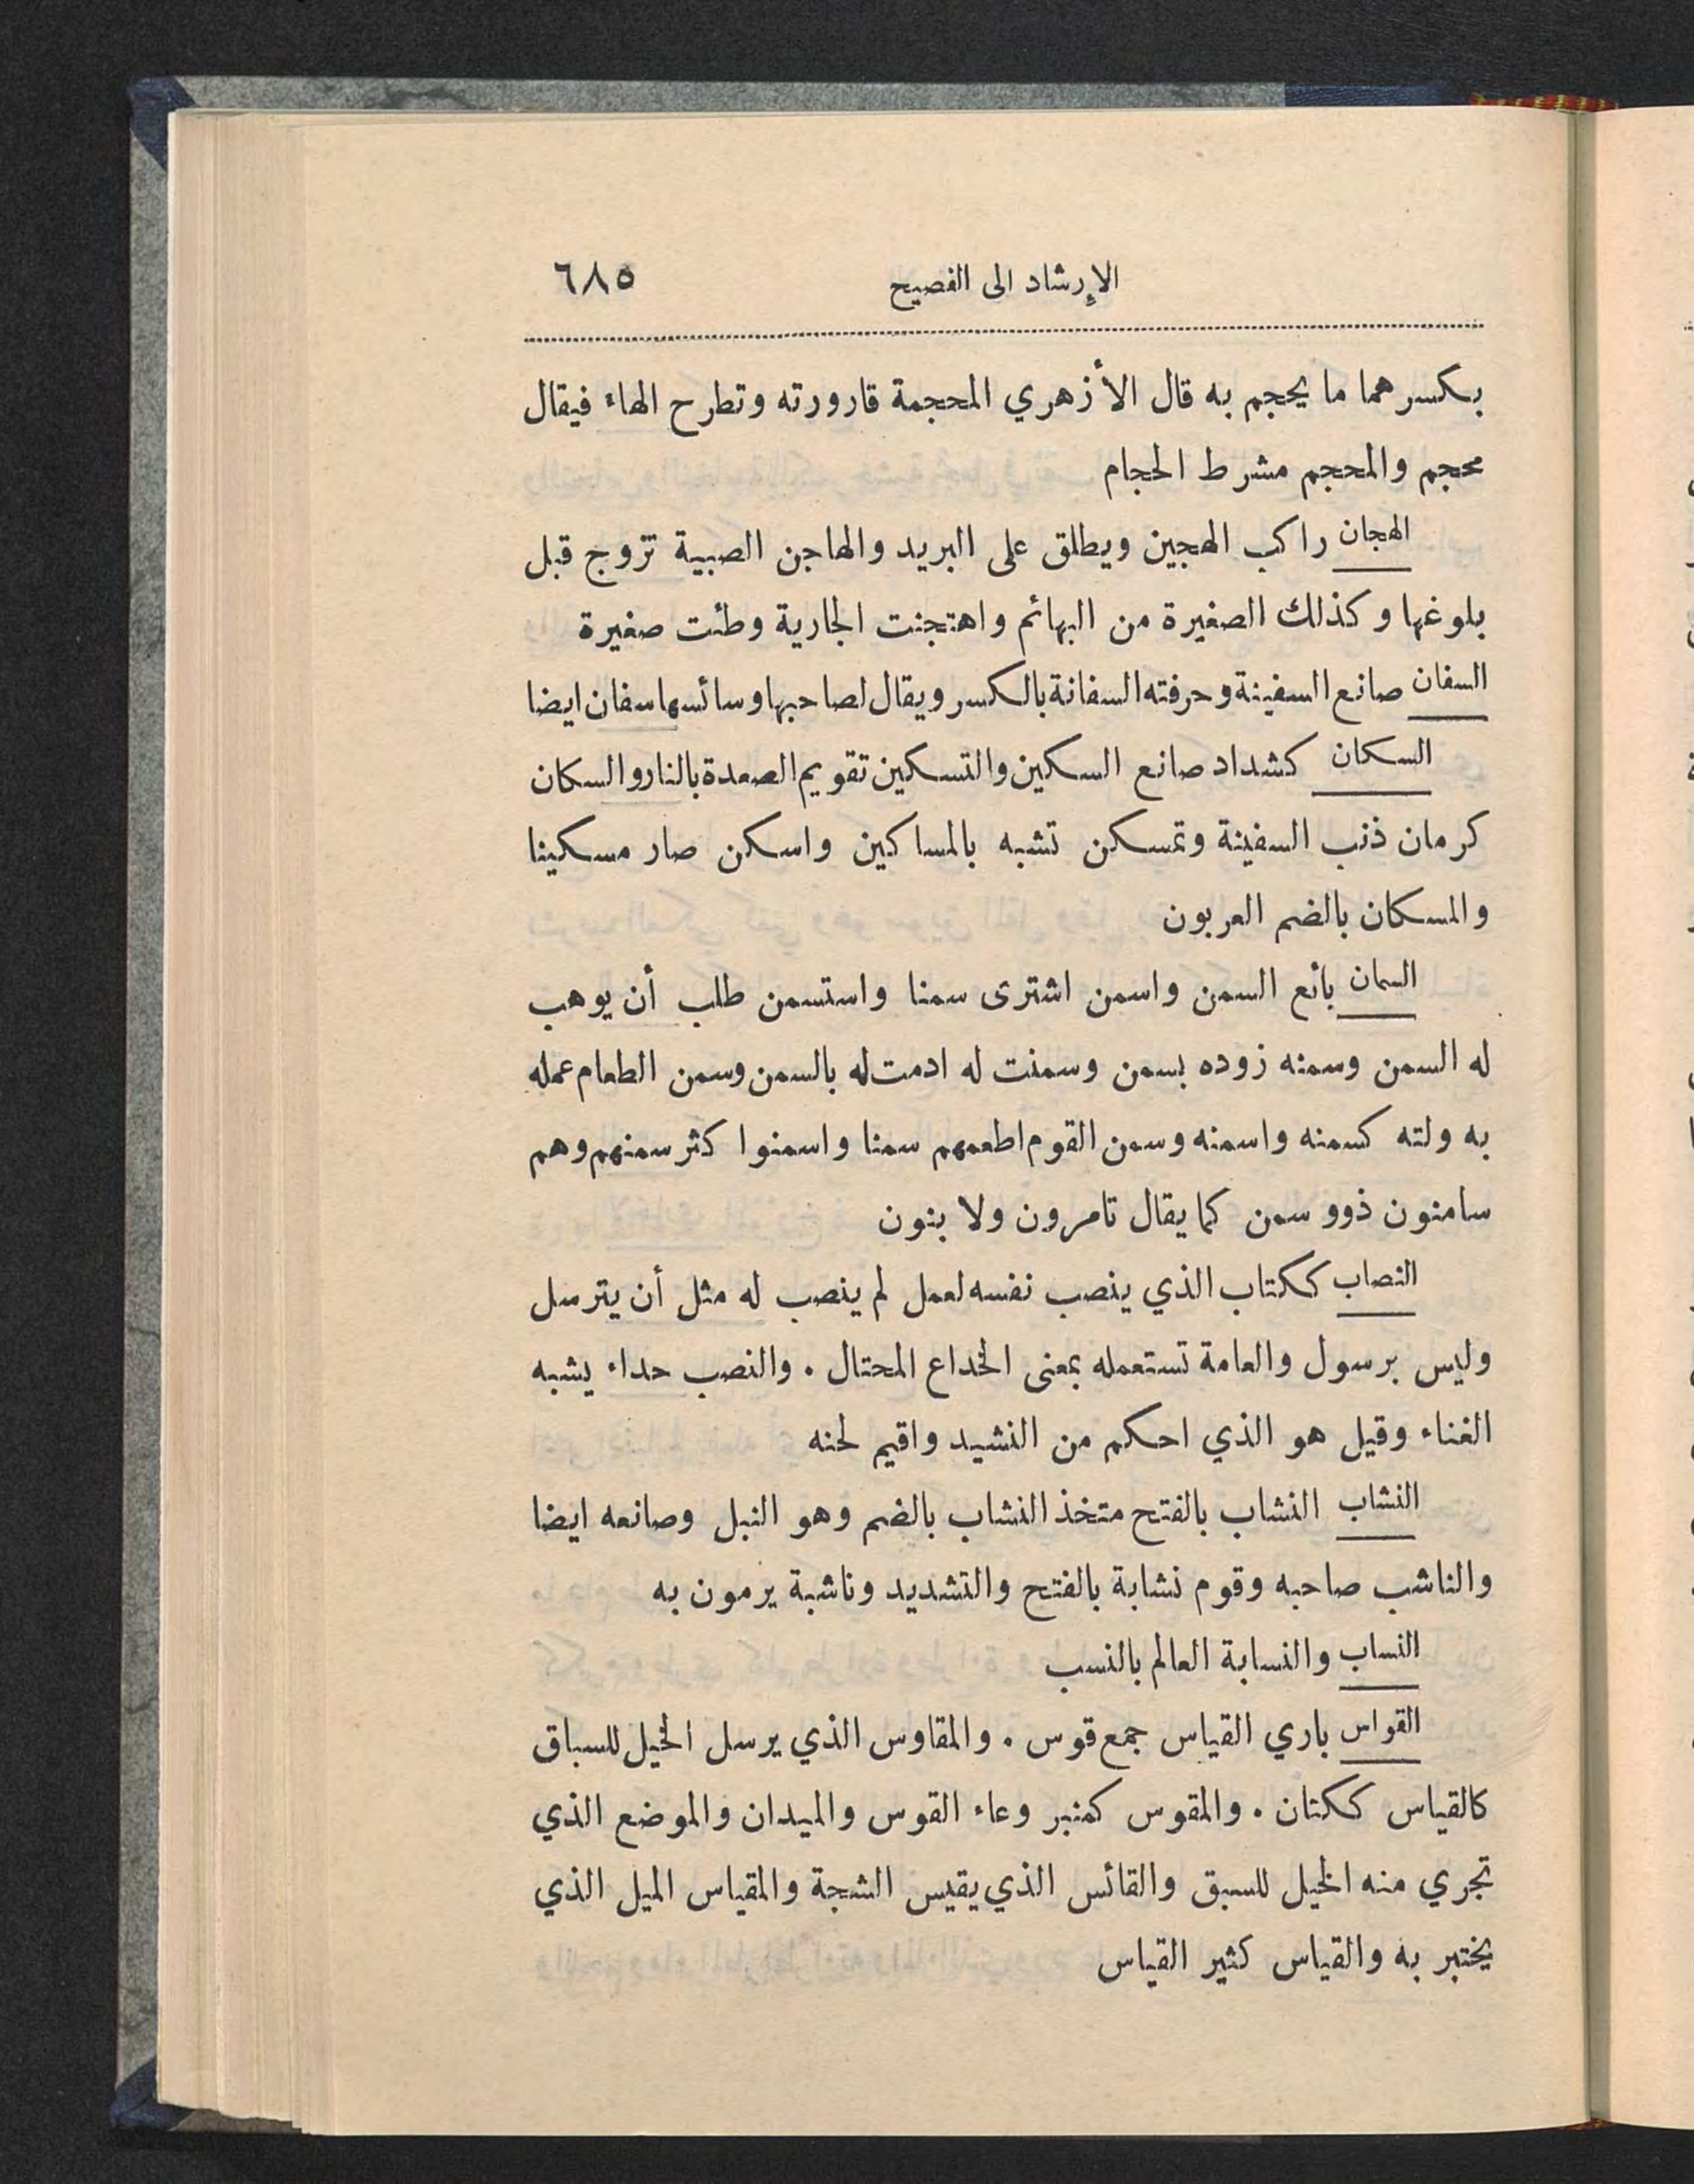 الإرشاد الى الفصيح ٦٨٥
بكسرهما ما يحجم به قال الأزهري المحجمة قارورته وتطرح الهاء فيقال
محجم والمحجم مشرط الحجام
الهجان راكب الهجين ويطلق على البريد والهاجن الصبية تزوج قبل
بلوغها وكذلك الصغيرة من البهائم واهتجنت الجارية وطئت صغيرة
السفان صانع السفينة وحرفته السفانة بالكسر ويقال لصاحبها وسائسها سفان ايضا
السكان كشداد صانع السكين والتسكين تقويم الصعدة بالنار والسكان
كرمان ذنب السفينة وتمسكن تشبه بالمساكين واسكن صار مسكينا
والمسكان بالضم العربون
السمان بائع السمن واسمن اشترى سمنا واستسمن طلب أن يوهب
له السمن وسمنه زوده بسمن وسمنت له ادمت له بالسمن وسمن الطعام عمله
به ولته كسمنه واسمنه وسمن القوم اطعمهم سمنا واسمنوا كثر سمنهم وهم
سامنون ذوو سمن كما يقال تامرون ولا بنون
النصاب ككتاب الذي ينصب نفسه لعمل لم ينصب له مثل أن يترسل
وليس برسول والعامة تستعمله بمعنى الخداع المحتال . والنصب حداء يشبه
الغناء وقيل هو الذي احكم من النشيد واقيم لحنه
النشاب النشاب بالفتح متخذ النشاب بالضم وهو النبل وصانعه ايضا
والناشب صاحبه وقوم نشابة بالفتح والتشديد وناشبة يرمون به
النساب والنسابة العالم بالنسب
القواس باري القياس جمع قوس . والمقاوس الذي يرسل الخيل للسباق
كالقياس ككتان . والمقوس كمنبر وعاء القوس والميدان والموضع الذي
تجري منه الخيل للسبق والقائس الذي يقيس الشجة والمقياس الميل الذي
يختبر به والقياس كثير القياس